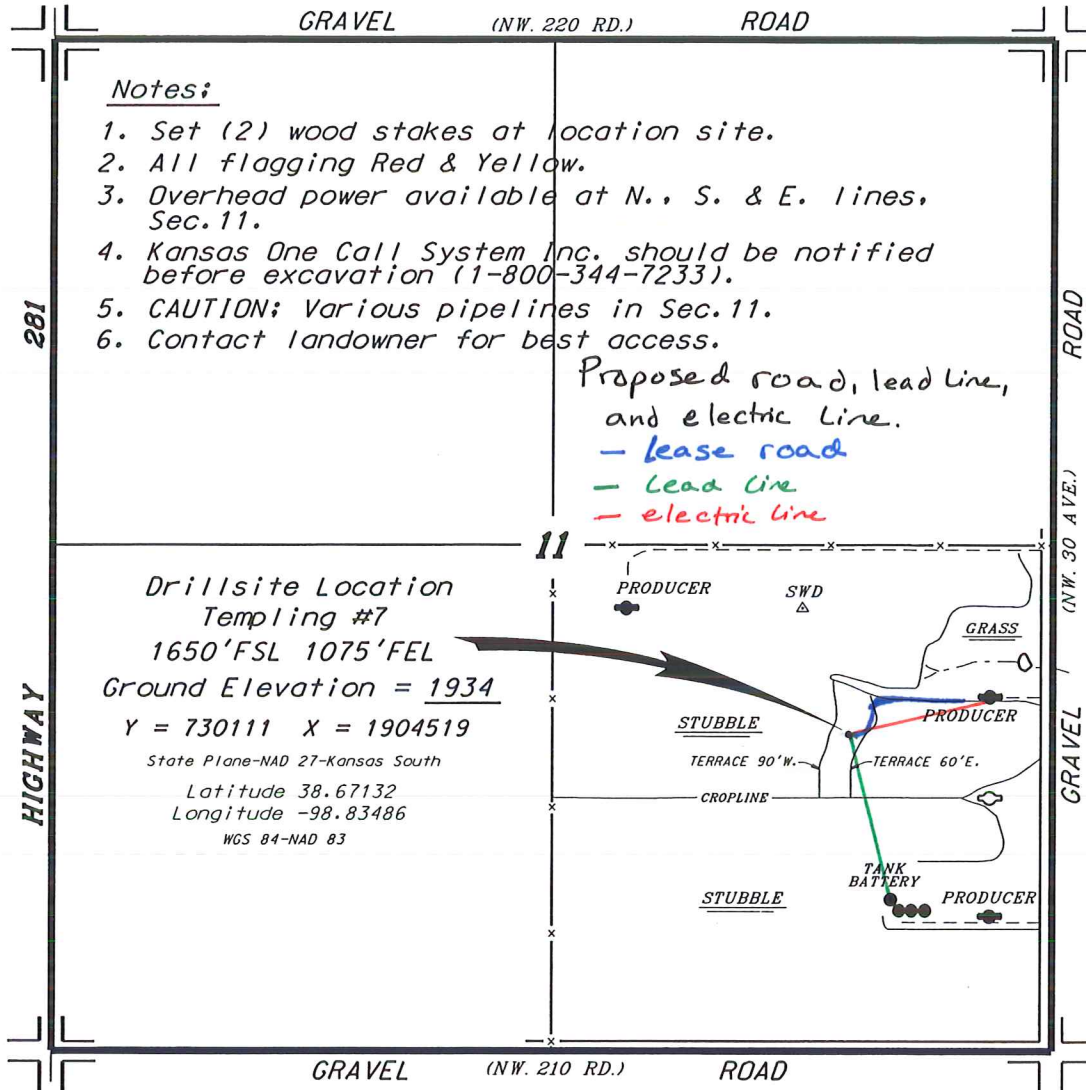 GRAVEL (NW. 220 RD.) ROAD
Notes:
1. Set (2) wood stakes at location site.
2. All flagging Red & Yellow.
3. Overhead power available at N., S. & E. lines,
Sec.11.
4. Kansas One Call System Inc. should be notified
before excavation (1-800-344-7233).
5. CAUTION: Various pipelines in Sec.11.
6. Contact landowner for best access.
Proposed road, lead line,
and electric Line.
- lease road
- lead line
- electric line
281
HIGHWAY
ROAD
(NW. 30 AVE.)
GRAVEL
11
Drillsite Location
Templing #7
1650'FSL 1075'FEL
Ground Elevation = 1934
Y = 730111 X = 1904519
State Plane-NAD 27-Kansas South
Latitude 38.67132
Longitude -98.83486
WGS 84-NAD 83
PRODUCER
SWD
GRASS
STUBBLE
PRODUCER
TERRACE 90'W.
TERRACE 60'E.
CROPLINE
TANK
BATTERY
STUBBLE
PRODUCER
GRAVEL (NW. 210 RD.) ROAD